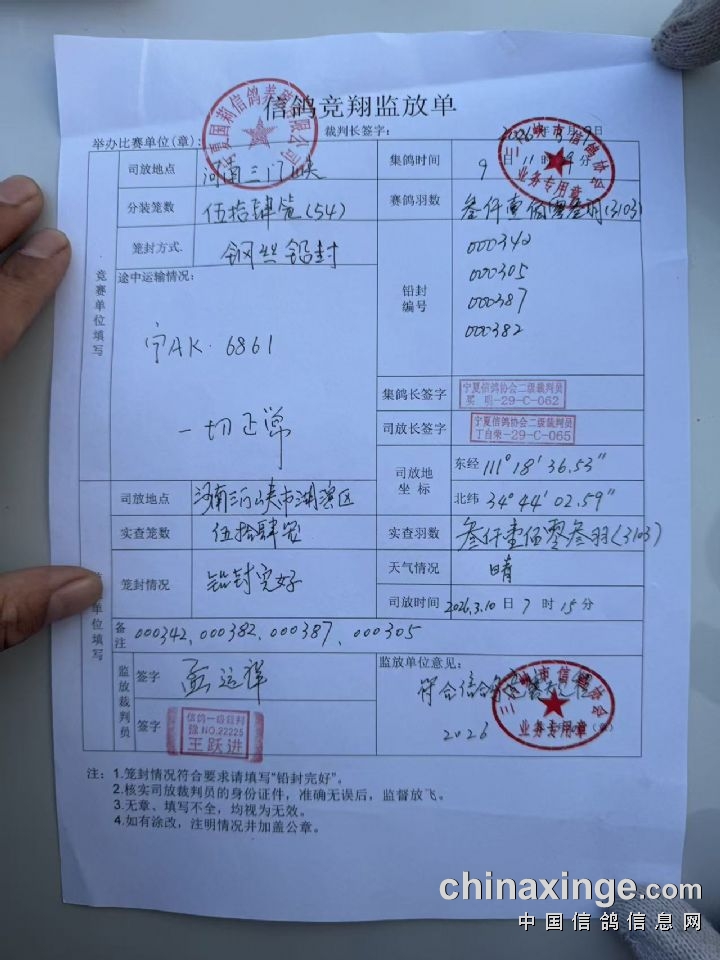 信鸽竞翔监放单
举办比赛单位(章): 裁判长签字: 2026年3月9日
司放地点 河南三门峡 集鸽时间 9日11时
分装笼数 伍拾肆笼(54) 赛鸽羽数 叁仟壹佰零叁羽(3103)
笼封方式 钢丝铅封
铅封编号 000342
000305
000387
000382
竞赛单位填写
途中运输情况:
宁AK·6861
一切正常
集鸽长签字 宁夏信鸽协会二级裁判员
买 明-29-C-062
司放长签字 宁夏信鸽协会二级裁判员
丁自荣-29-C-065
司放地坐标 东经 111° 18′ 36.53″
北纬 34° 44′ 02.59″
司放地点 河南三门峡市湖滨区
实查笼数 伍拾肆笼 实查羽数 叁仟壹佰零叁羽(3103)
笼封情况 铅封完好 天气情况 晴
司放时间 2026.3.10日7时15分
单位填写
备注 000342、000382、000387、000305
监放裁判员 签字 孟运祥
签字 信鸽一级裁判
豫NO.22225
王跃进
监放单位意见:
符合信鸽竞翔规程
2026
三门峡市信鸽协会
业务专用章
三门峡市信鸽协会
业务专用章
注: 1.笼封情况符合要求请填写“铅封完好”。
2.核实司放裁判员的身份证件，准确无误后，监督放飞。
3.无章、填写不全，均视为无效。
4.如有涂改，注明情况并加盖公章。
chinaxinge.com
中国信鸽信息网